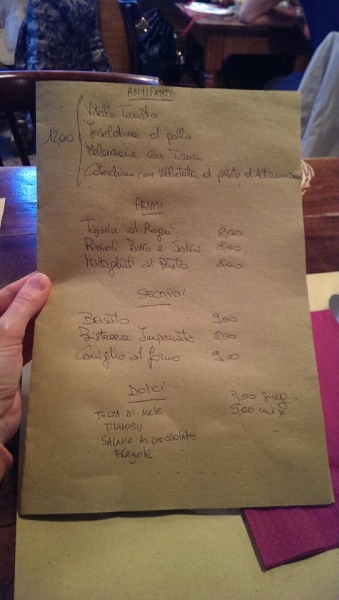 ANTIPASTI
Vitello Tonnato
Insalatina di pollo
12,00
con
Cotechino con Vellutata di
PRIMI
Tajarin al Ragù 8,00
Ravioli Burro e Salvia 8,00
Maltagliati al 8,00
SECONDI
Brasato 9,00
8,00
Coniglio al forno 9,00
DOLCI
TORTA DI MELE 3,00
TIRAMISU 5,00
SALAME AL CIOCCOLATO
FRAGOLE